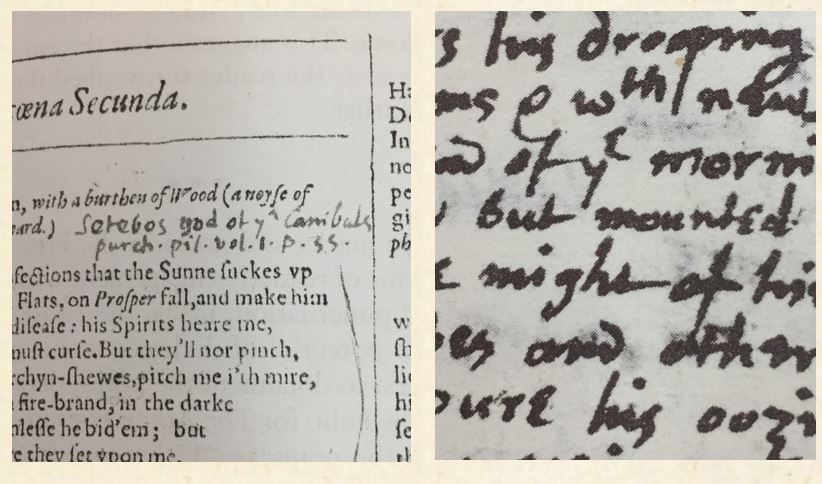 cœna Secunda.
n, with a burthen of Wood (a noyse of
ard.) Setebos god of yᵉ Canibals
purch. pil. vol. 1. p. 35.
fections that the Sunne suckes vp
Flats, on Prosper fall, and make him
disease: his Spirits heare me,
nust curse. But they'll nor pinch,
rchyn-shewes, pitch me i'th mire,
fire-brand, in the darke
nlesse he bid'em; but
e they set vpon me,
Ha
Do
In
no
pe
gi
ph
w
sh
lie
hi
se
th
s his drooping
ms & wᵗʰ new
of yᵉ morni
but mounted
might of his
es and other
oure his oozi